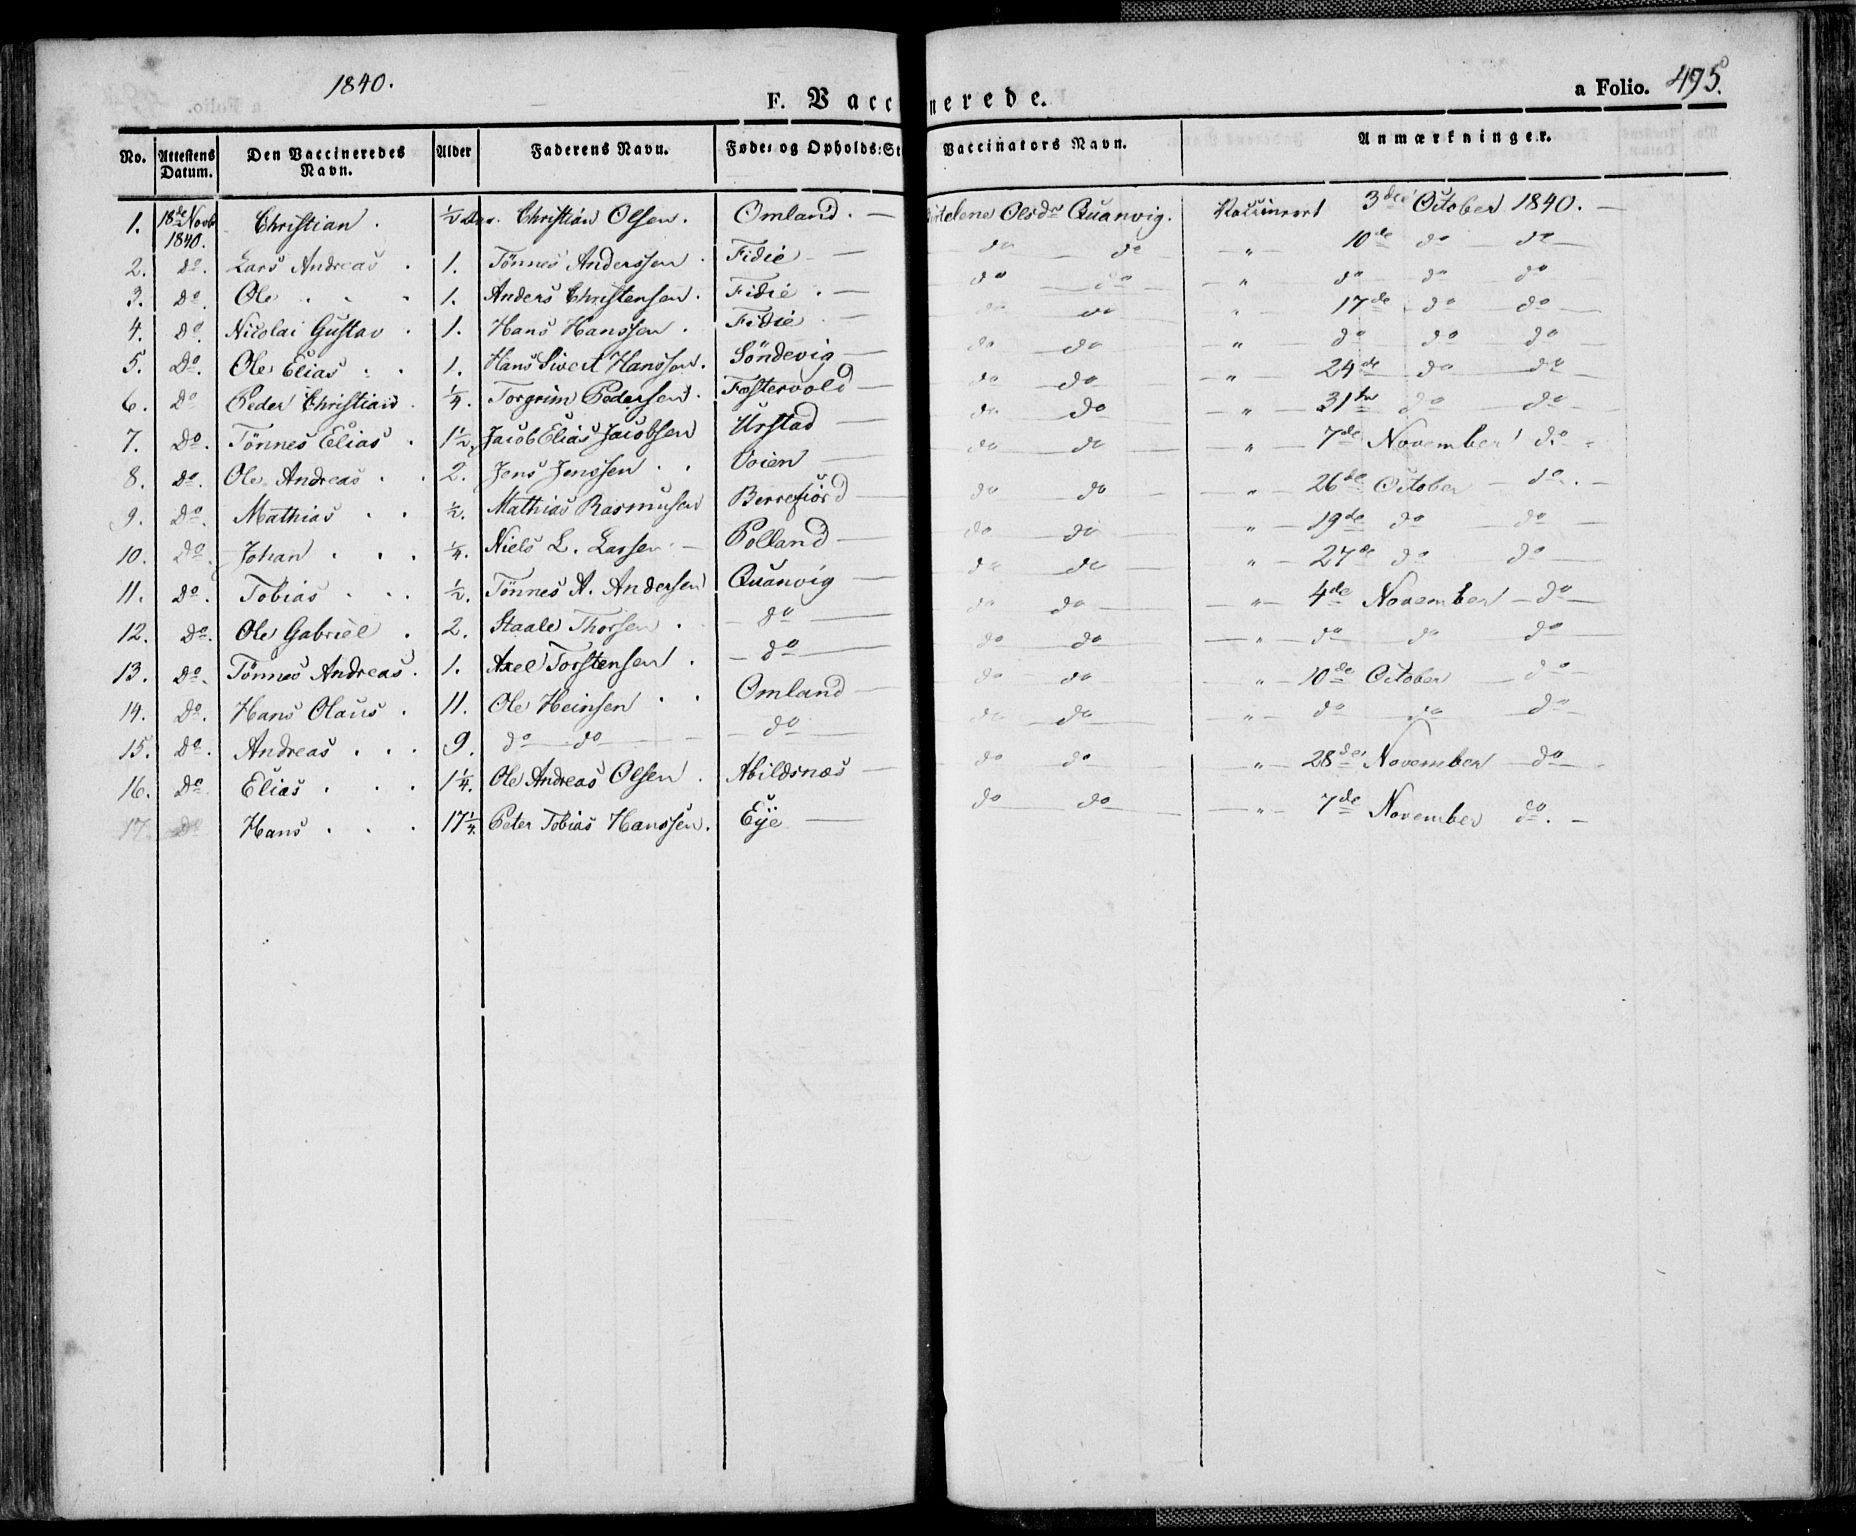 1840.
F. Vaccinerede.
a Folio. 495.
No. Attestens Datum. Den Vaccineredes Navn. Alder Faderens Navn. Føde- og Opholds-St Vaccinators Navn. Anmærkninger.
1. 18de Novb 1840. Christian. 1/2 Christian Olsen. Omland. — Olsdr Quanvig. Vaccineert 3die October 1840. —
2. do. Lars Andreas. 1. Tönnes Anderssen. Fidie — do do — " — 10de do — do —
3. do. Ole . . . 1. Anders Christensen. Fidie. — do — do — " — do do do
4. do. Nicolai Gustav. 1. Hans Hanssen. Fidie — do do — " — 17de do do
5. Do. Ole Elias . . 1. Hans Sivert Hanssen. Söndevig — do — do — " — do do do
6. Do Peder Christian. 1/4. Torgrim Pedersen. Fæstervold — do do — " — 24de do do
7. Do. Tönnes Elias. 1 1/2 Jacob Elias Jacobsen Urstad — do do — " — 31te do — do —
8. do. Ole Andreas . . 2. Jens Jenssen . . Voien — do do — " — 7de November do. -
9. do. Mathias . . 1/2. Mathias Rasmusen Berrefiord — do do — " — 26de October — do. —
10. do. Johan . . . 1/4. Niels L. Larsen — Polland — do do — " — 19de do — do —
11. do. Tobias . . . 1/2. Tönnes A. Andersen Quanvig — do do — " — 27de do do —
12. do. Ole Gabriel . 2. Staale Thorsen . — do — do do — " — 4de November — do —
13. do. Tönnes Andreas. 1. Axel Torstensen . — do — do do — " — do do do
14. do. Hans Olaus . 11. Ole Heinsen . . Omland — do do — " — 10de October — do —
15. do. Andreas . . . 9. do — do — — do — do do — " — do do do —
16. Do Elias . . . 1 1/4. Ole Andreas Olsen . Abildsnæs — do do — " — 28de November — do —
17. do Hans . . . 17 1/4. Peter Tobias Hanssen. Eye — do do — " — 7de November do. —